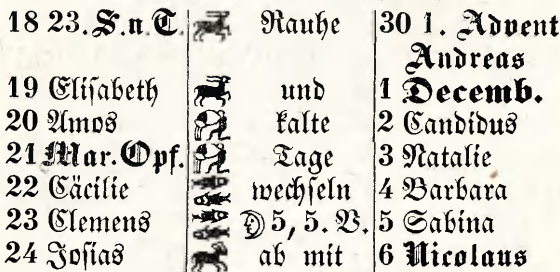 18 23. S. n T. Rauhe 30 1. Advent
Andreas
19 Elisabeth und 1 Decemb.
20 Amos kalte 2 Candidus
21 Mar. Opf. Tage 3 Natalie
22 Cäcilie wechseln 4 Barbara
23 Clemens 5, 5. V. 5 Sabina
24 Josias ab mit 6 Nicolaus